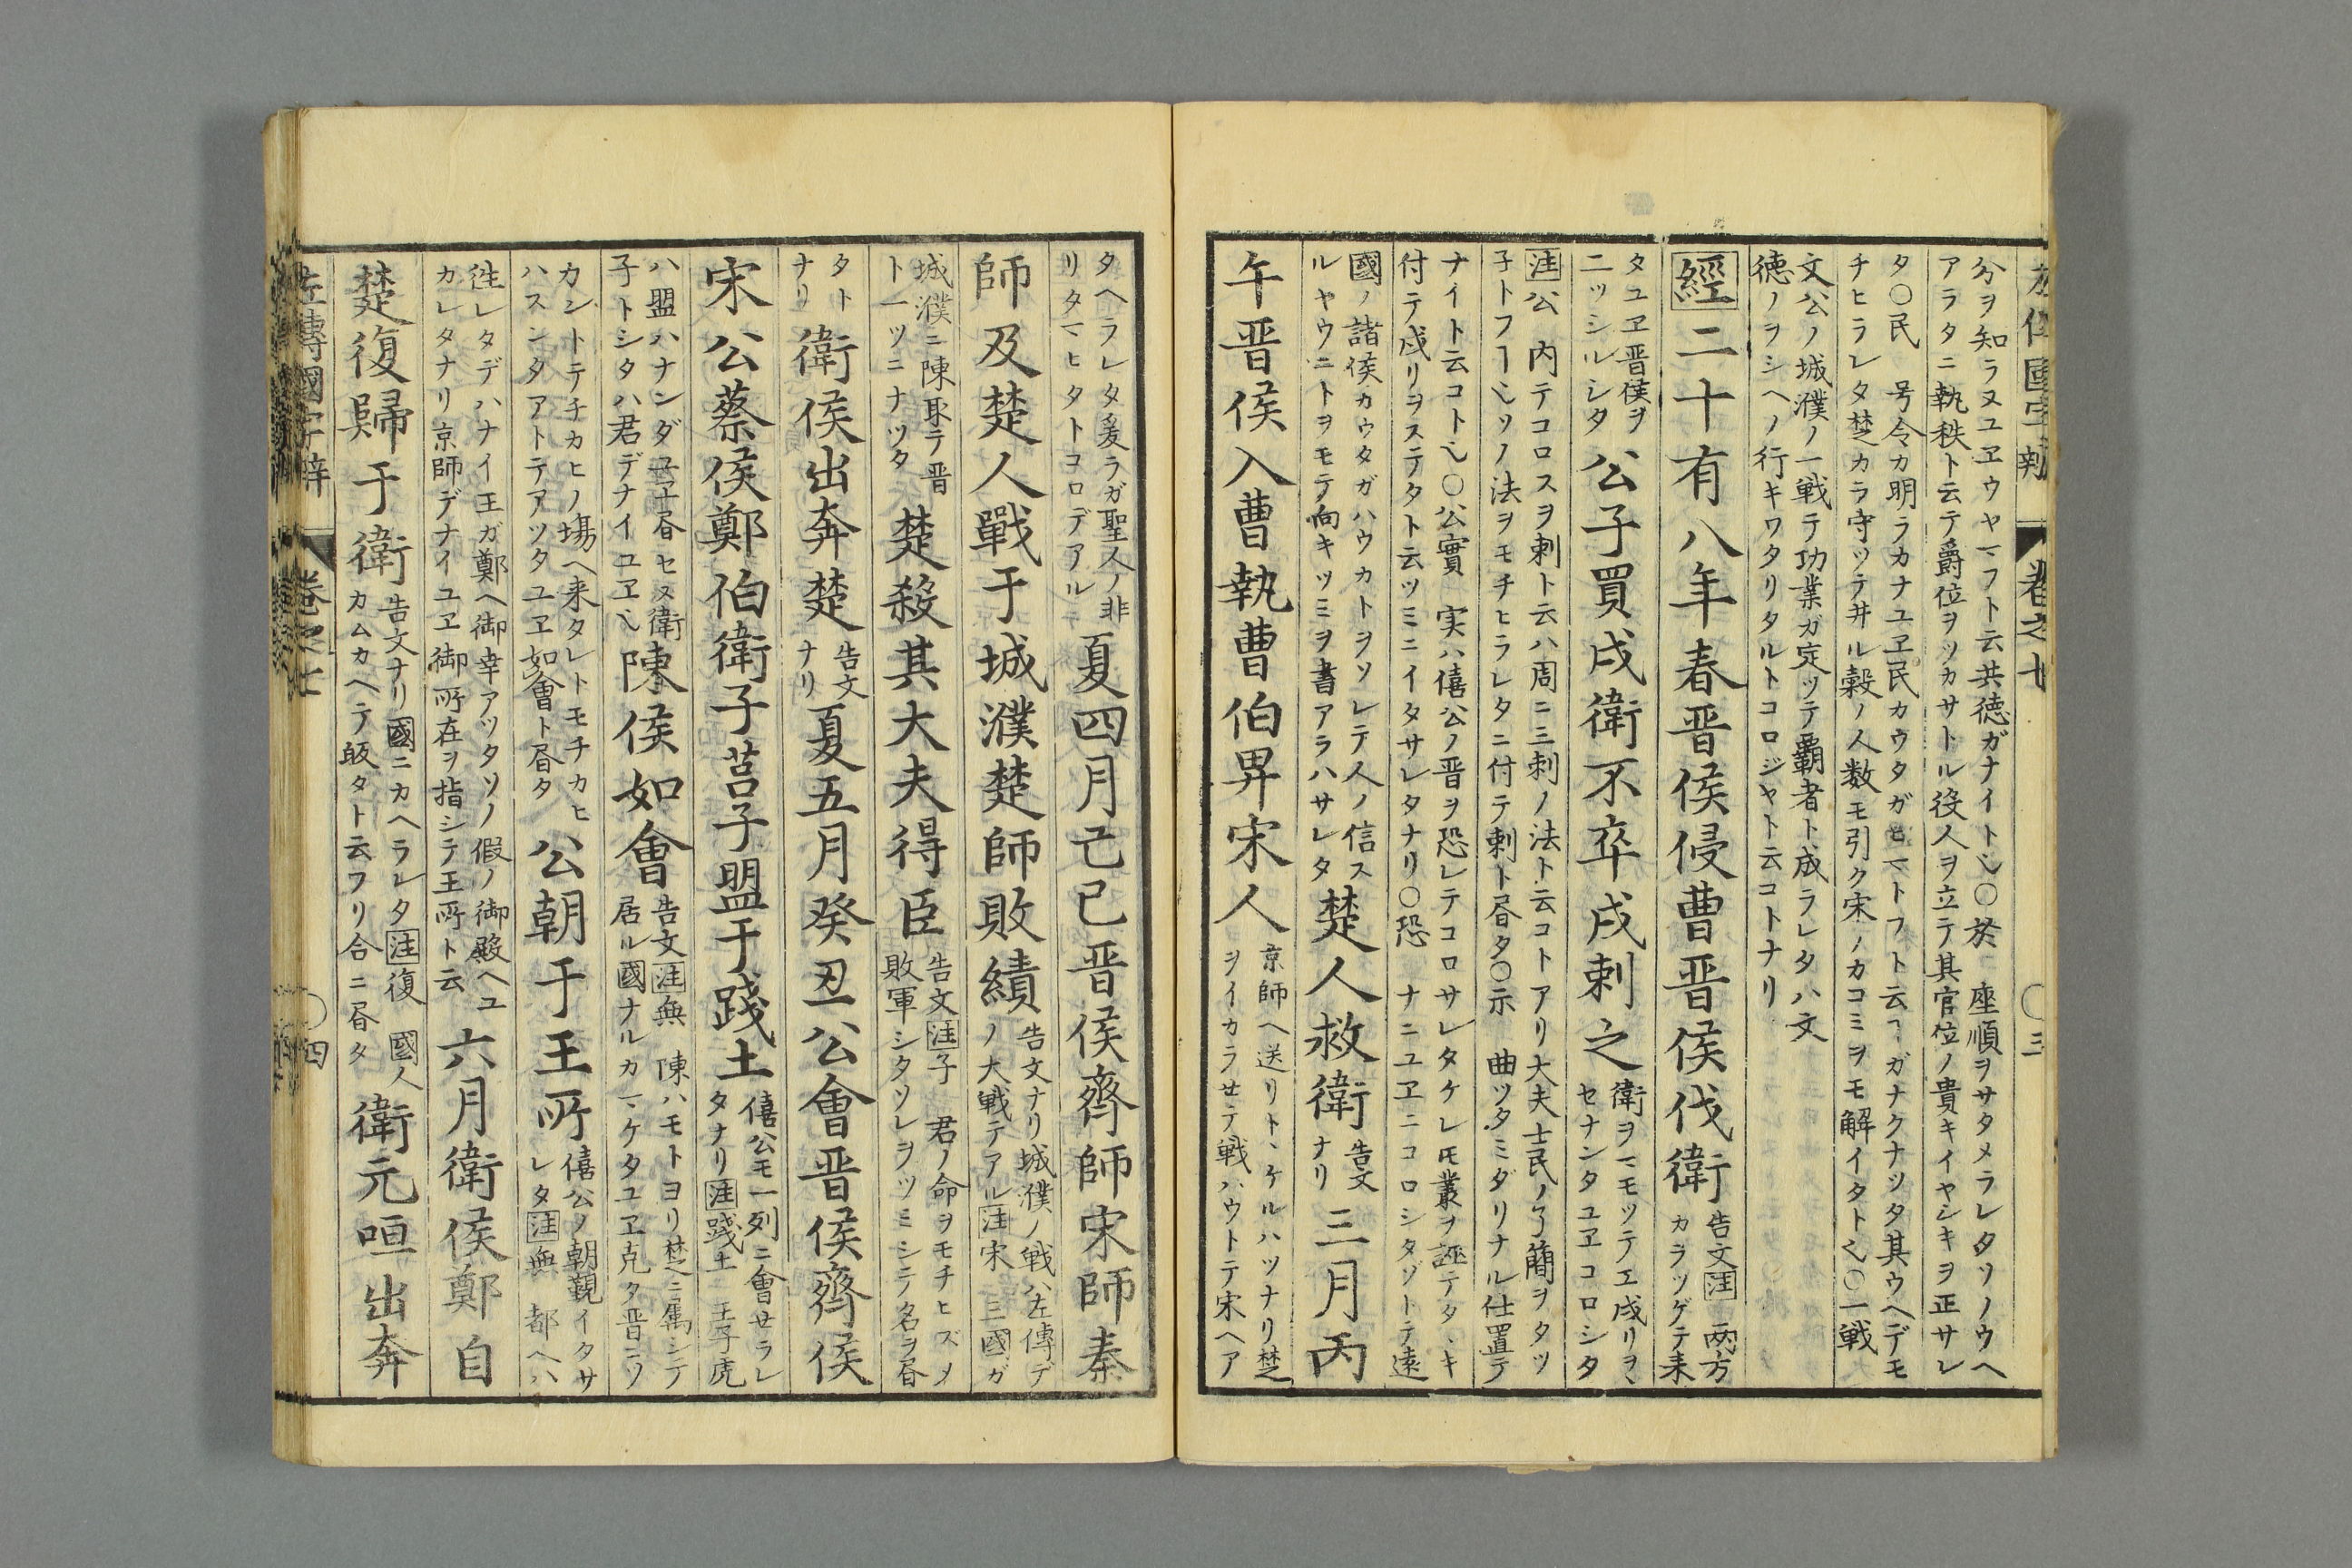 分ヲ知ラヌユヱウヤマフト云共徳ガナイト也○於 座順ヲサタメラレタソノウヘ
アラタニ執秩ト云テ爵位ヲツカサトル役人ヲ立テ其官位ノ貴キイヤシキヲ正サレ
タ○民 号令カ明ラカナユヱ民カウタガヒマトフト云コガナクナツタ其ウヘデモ
チヒラレタ楚カラ守ツテ井ル穀ノ人数モ引ク宋ノカコミヲモ解イタト也○一戦
文公ノ城濮ノ一戦テ功業ガ定ツテ覇者ト成ラレタハ文
徳ノヲシヘノ行キワタリタルトコロジヤト云コトナリ
經二十有八年春晋侯侵曹晋侯伐衛 告文注 両方
カラツゲテ来
タユヱ晋侯ヲ
二ツシルシタ
公子買戍衛不卒戍刺之 衛ヲマモツテ工戍リヲヽ
セナンタユヱコロシタ
注公 内テコロスヲ刺ト云ハ周ニ三刺ノ法ト云コトアリ大夫士民ノ了簡ヲタツ
子トフ也ソノ法ヲモチヒラレタニ付テ刺ト昏タ○示 曲ツタミダリナル仕置テ
ナイト云コト也○公實 実ハ僖公ノ晋ヲ恐レテコロサレタケレ𪜈叢ヲ誣テタヽキ
付テ戍リヲステタト云ツミニイタサレタナリ○恐 ナニユヱニコロシタゾトテ遠
國ノ諸侯カウタガハウカトヲソレテ人ノ信ス
ルヤウニトヲモテ向キツミヲ書アラハサレタ
楚人救衛 告文
ナリ
三月丙
午晋侯入曹執曹伯畀宋人 京師ヘ送リトヽケルハツナリ楚
ヲイカラセテ戦ハウトテ宋ヘア
タヘラレタ爰ラガ聖人ノ非
リタマヒタトコロデアル
夏四月己巳晋侯齊師宋師秦
師及楚人戰于城濮楚師敗績 告文ナリ城濮ノ戦ハ左傳デ
ノ大戦テアル注宋 三國ガ
城濮ニ陳取テ晋
ト一ツニナツタ
楚殺其大夫得臣 告文注子 君ノ命ヲモチヒズメ
敗軍シタソレヲツミシテ名ヲ昏
タト
ナリ
衛侯出奔楚 告文
ナリ
夏五月癸丑公會晋侯齊侯
宋公蔡侯鄭伯衛子莒子盟于踐土 僖公モ一列ニ會セラレ
タナリ注踐土 王子虎
ハ盟ハナンダユヱ昏セヌ衛
子トシタハ君デナイユヱ也
陳侯如會 告文注無 陳ハモトヨリ楚ニ属シテ
居ル國ナルカマケタユヱ克タ晋ニソ
カントテチカヒノ塲ヘ来タレトモチカヒ
ハスンタアトテアツタユヱ如會ト昏タ
公朝于王所 僖公ノ朝覲イタサ
レタ注無 都ヘハ
徃レタデハナイ王ガ鄭ヘ御幸アツタソノ假ノ御殿ヘユ
カレタナリ京師デナイユヱ御所在ヲ指シテ王所ト云
六月衛侯鄭自
楚復歸于衛 告文ナリ國ニカヘラレタ注復 國人
カムカヘテ皈タト云フリ合ニ昏タ
衛元咺出奔
左傳國字辯 卷之七 ○四